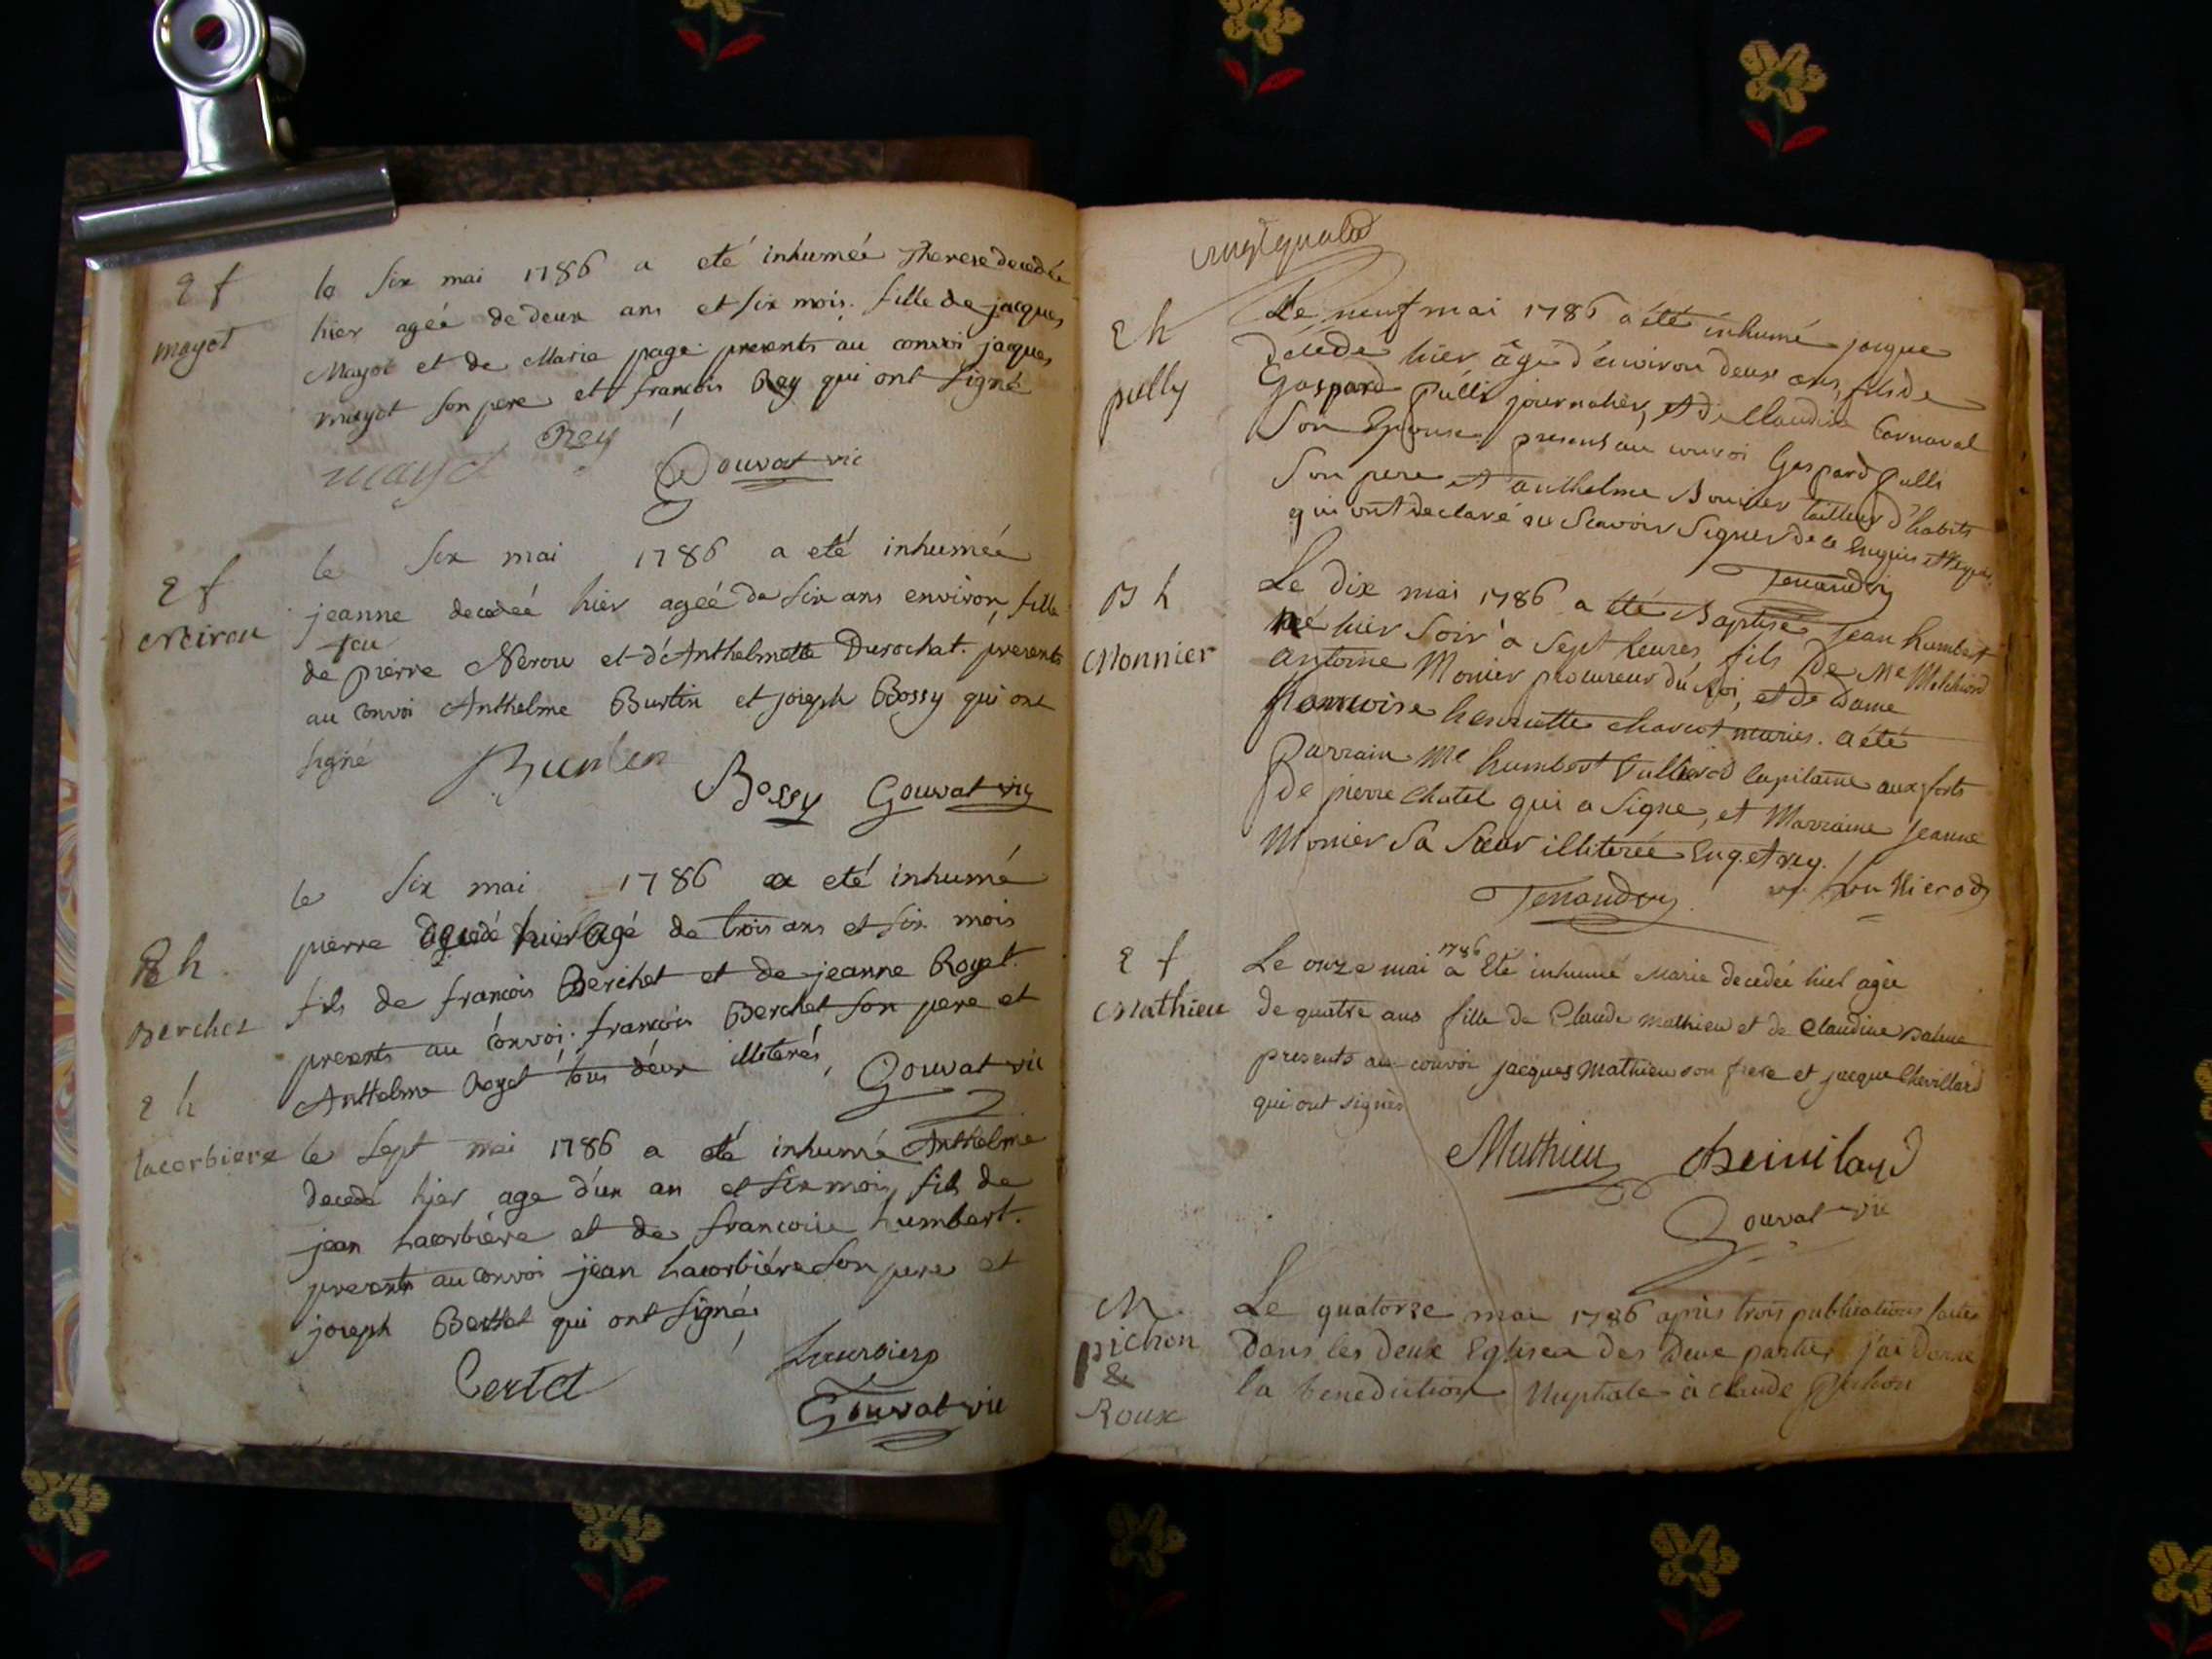 E f
mayot
le six mai 1786 a eté inhumée Therese decedée
hier agée de deux ans et six mois. fille de jacques
Mayot et de Marie page presents au convoi jacques
mayot son pere et francois Rey qui ont signé
mayot Rey Gouvat vic
E f
Neirou
le six mai 1786 a eté inhumée
jeanne decedeé hier ageé de six ans environ, fille
feu
de pierre Nerou et d'Anthelmette Durochat. presents
au convoi Anthelme Burtin et joseph Bossy qui ont
signé
Burtin Bossy Gouvat vic
E h
Berchet
le six mai 1786 a eté inhumé
pierre decedé hier agé de trois ans et six mois
fils de francois Berchet et de jeanne Royet.
presents au convoi francois Berchet son pere et
Anthelme Royet tous deux illiterés,
Gouvat vic
E h
lacorbiere
le sept mai 1786 a eté inhumé Anthelme
decedé hier age d'un an et six mois, fils de
jean Lacorbiére et de francoise humbert.
presents au convoi jean Lacorbiére son pere et
joseph Berthet qui ont signé,
Bertet
Gouvat vic
E h
pully
Le neuf mai 1786 a été inhumé jacque
Décédé hier âgé d'environ deux ans, fils de
Gaspard Pulli journalier, et de Claudine Carnaval
Son Epouse. present au convoi Gaspard Pulli
Son pere et anthelme Bouvier tailleur d'habits
qui ont declaré ne Scavoir Signer de ce Enquis et Requis.
Tenaudry
B h
Monnier
Le dix mai 1786 a été Baptisé Jean humbert
né hier soir à sept heures, fils de Me Melchiord
antoine Monier procureur du Roi, et de dame
francoise henriette chavot mariés. a été
Parrain Me humbert Vullierod Capitaine aux forts
de pierre Chatel qui a signe, et Marraine Jeanne
Monier Sa Sœur illiterée Enq. et req.
Tenaudry
E f
Mathieu
1786
Le onze mai a Eté inhumé Marie decedeé hier agée
de quatre ans fille de Claude Mathieu et de Claudine
presents au convoi jacques Mathieu son frere et jacque Chevillard
qui ont signés
Mathieu
Gouvat vic
M
pichon
&
Roux
Le quatorze mai 1786 après trois publications faites
Dans les deux Eglises des deux parties j'ai donné
la benediction Nuptiale à Claude Pichon